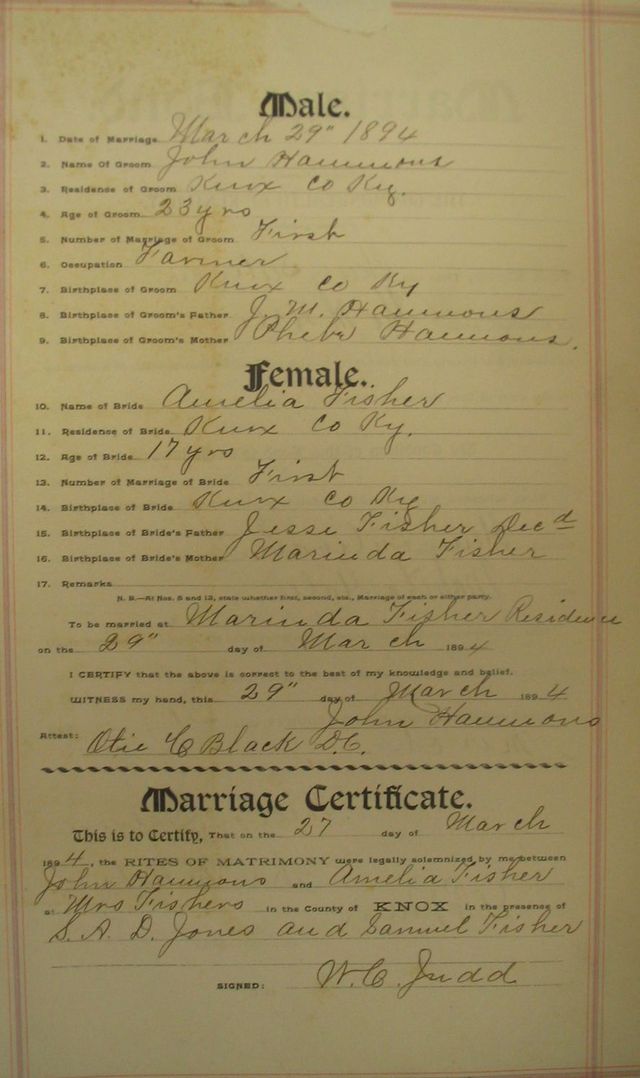 Male.
1. Date of Marriage March 29" 1894
2. Name Of Groom John Hammons
3. Residence of Groom Knox Co Ky.
4. Age of Groom 23 yrs
5. Number of Marriage of Groom First
6. Occupation Farmer
7. Birthplace of Groom Knox Co Ky
8. Birthplace of Groom's Father J. M. Hammons
9. Birthplace of Groom's Mother Phebe Hammons.
Female.
10. Name of Bride Amelia Fisher
11. Residence of Bride Knox Co Ky.
12. Age of Bride 17 yrs
13. Number of Marriage of Bride First
14. Birthplace of Bride Knox Co Ky
15. Birthplace of Bride's Father Jesse Fisher Decd
16. Birthplace of Bride's Mother Marinda Fisher
17. Remarks
N. B.—At Nos. 5 and 13, state whether first, second, etc., Marriage of each or either party.
To be married at Marinda Fisher Residence
on the 29" day of March 1894
I CERTIFY that the above is correct to the best of my knowledge and belief.
WITNESS my hand, this 29" day of March 1894
John Hammons
Attest: Otie C Black D.C.
Marriage Certificate.
This is to Certify, That on the 27 day of March
1894, the RITES OF MATRIMONY were legally solemnized by me between
John Hammons and Amelia Fisher
at Mrs Fishers in the County of KNOX in the presence of
S. A. D. Jones and Samuel Fisher
SIGNED: W. C. Judd